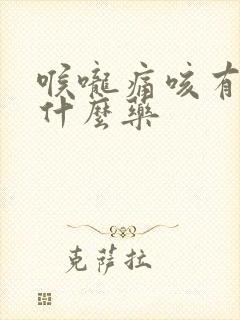 喉嚨痛咳有
什麼藥
克薩拉